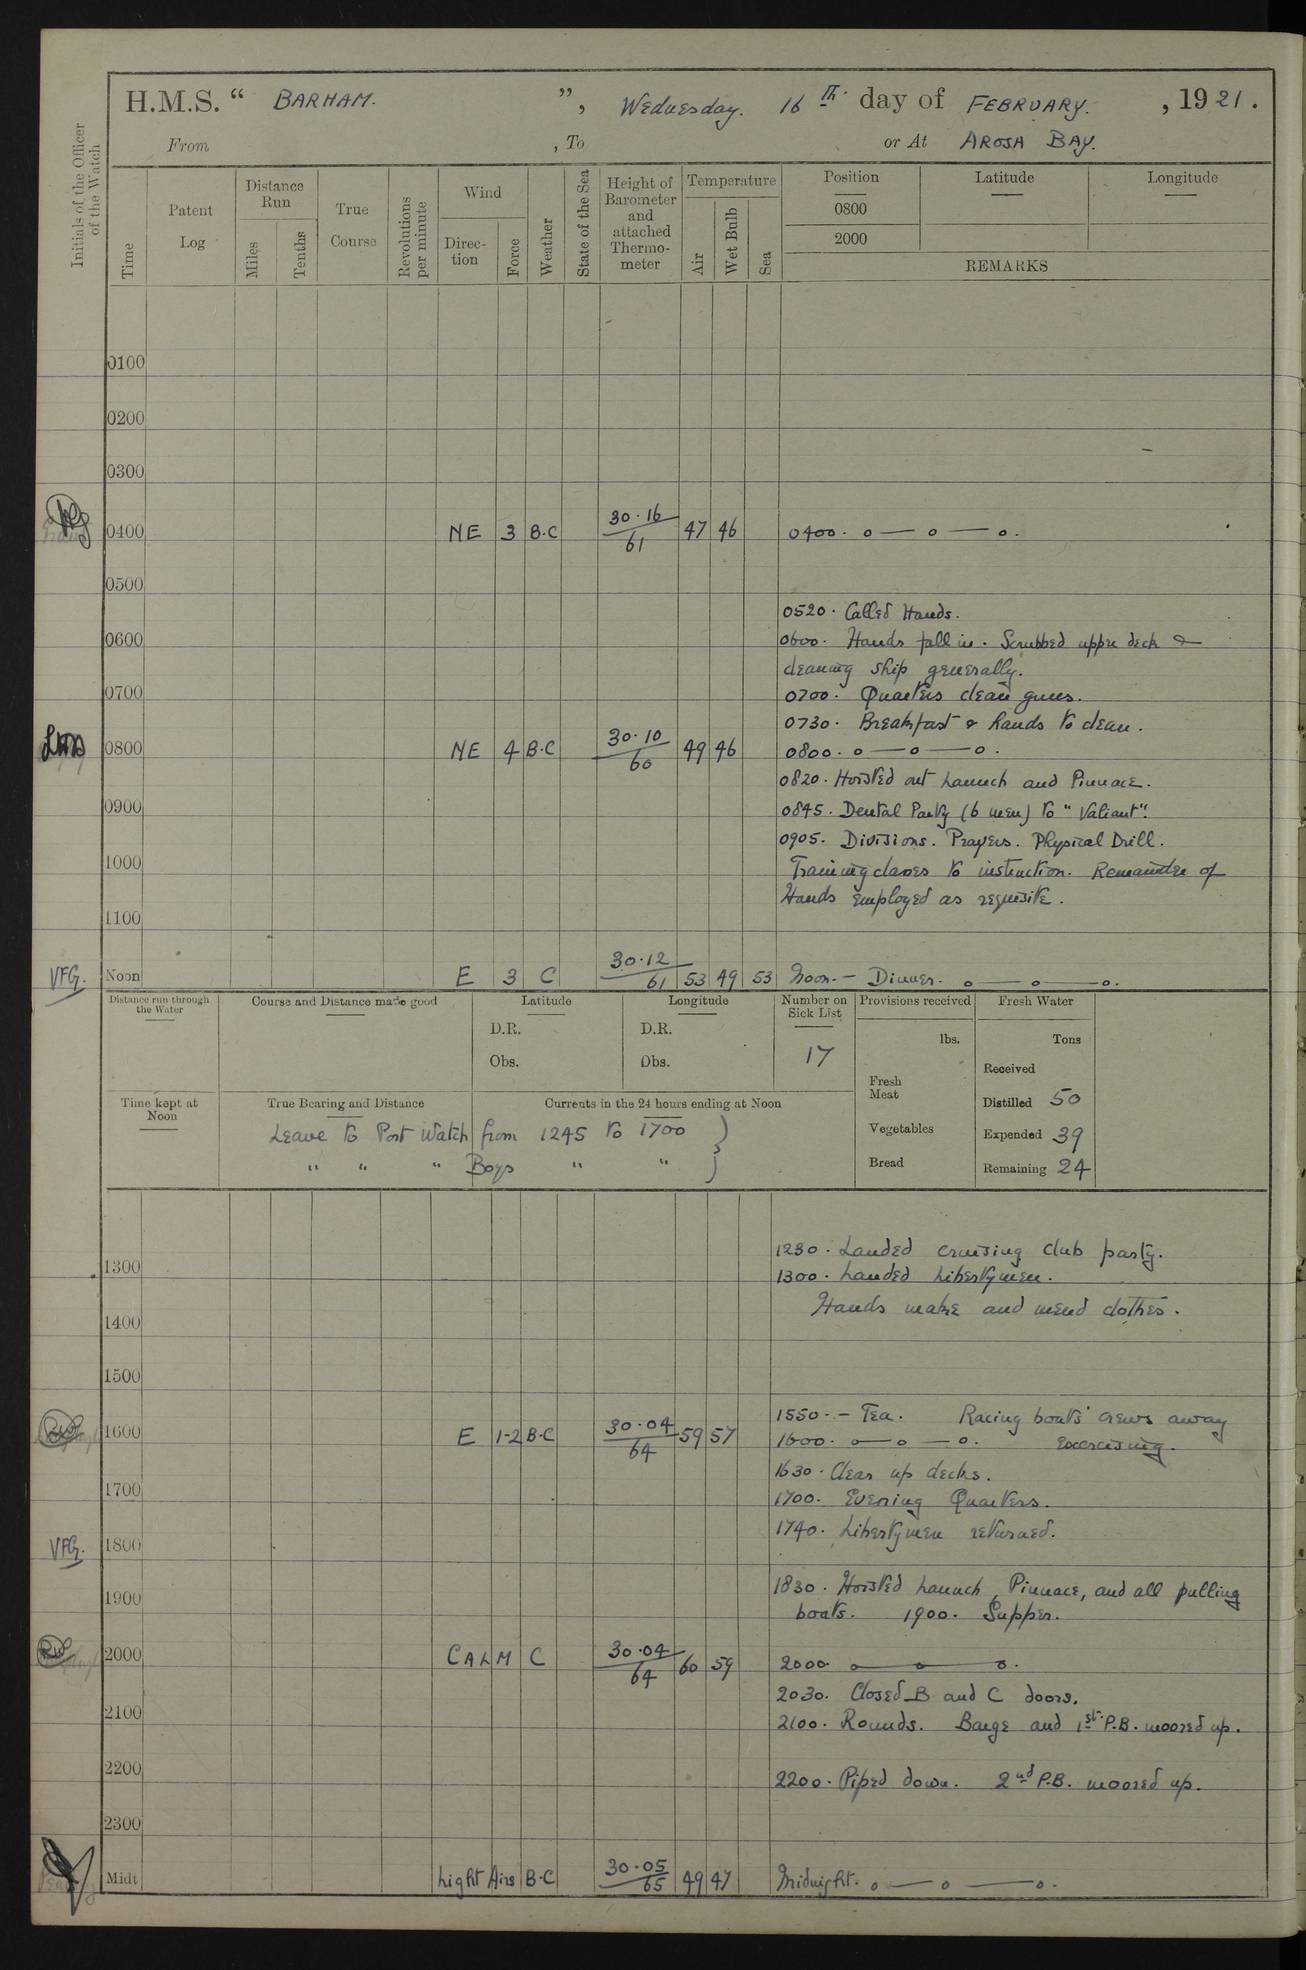 H.M.S. “ BARHAM. ”, Wednesday. 16th. day of FEBRUARY. , 1921.
From , To or At AROSA BAY.
Initials of the Officer of the Watch
Time
Patent Log
Distance Run
Miles
Tenths
True Course
Revolutions per minute
Wind
Direc-tion
Force
Weather
State of the Sea
Height of Barometer and attached Thermo-meter
Temperature
Air
Wet Bulb
Sea
Position Latitude Longitude
0800
2000
REMARKS
0100
0200
0300
0400 NE 3 B.C 30.16/61 47 46 0400. o — o — o.
0500
0520. Called Hands.
0600 0600. Hands fall in. Scrubbed upper deck &
cleaning ship generally.
0700 0700. Quarters clean guns.
0730. Breakfast & hands to clean.
0800 NE 4 B.C 30.10/60 49 46 0800. o — o — o.
0820. Hoisted out Launch and Pinnace.
0900 0845. Dental Party (6 men) to "Valiant".
0905. Divisions. Prayers. Physical Drill.
1000 Training classes to instruction. Remainder of
Hands employed as requisite.
1100
VFG. Noon E 3 C 30.12/61 53 49 53 Noon. — Dinner. o — o — o.
Distance run through the Water
Course and Distance made good
Latitude
D.R.
Obs.
Longitude
D.R.
Obs.
Number on Sick List
17
Provisions received
lbs.
Fresh Meat
Vegetables
Bread
Fresh Water
Tons
Received
Distilled 50
Expended 39
Remaining 24
Time kept at Noon
True Bearing and Distance
Currents in the 24 hours ending at Noon
Leave to Port Watch from 1245 to 1700 )
" " " Boys " " )
1230. Landed cruising club party.
1300 1300. Landed Libertymen.
Hands make and mend clothes.
1400
1500
1550. – Tea. Racing boats' crews away
1600 E 1-2 B.C 30.04/64 59 57 1600. o — o — o. exercising.
1630. Clear up decks.
1700 1700. Evening Quarters.
1740. Libertymen returned.
VFG. 1800
1830. Hoisted Launch, Pinnace, and all pulling
1900 boats. 1900. Supper.
2000 CALM C 30.04/64 60 59 2000 o — o — o.
2030. Closed B and C doors.
2100 2100. Rounds. Barge and 1st. P.B. moored up.
2200 2200. Piped down. 2nd P.B. moored up.
2300
Midt Light Airs B.C 30.05/65 49 47 Midnight. o — o — o.